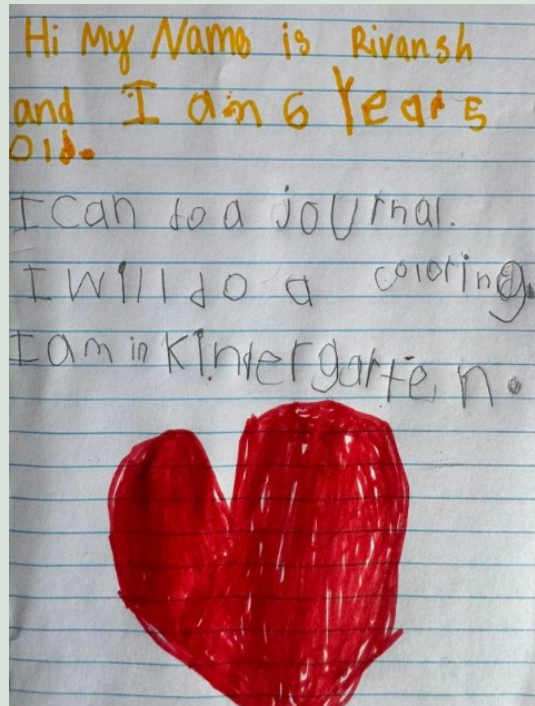 Hi My Name is Rivansh
and I am 6 Years
Old.
I can do a joUrnal.
I Will do a coloring.
I am in Kindergarten.